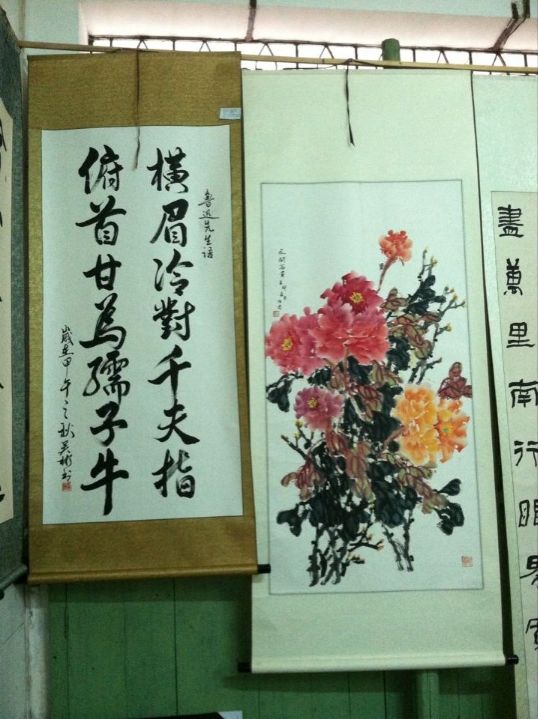 魯迅先生語
橫眉冷對千夫指
俯首甘為孺子牛
歲在甲午之秋吳
萬里南行眼界